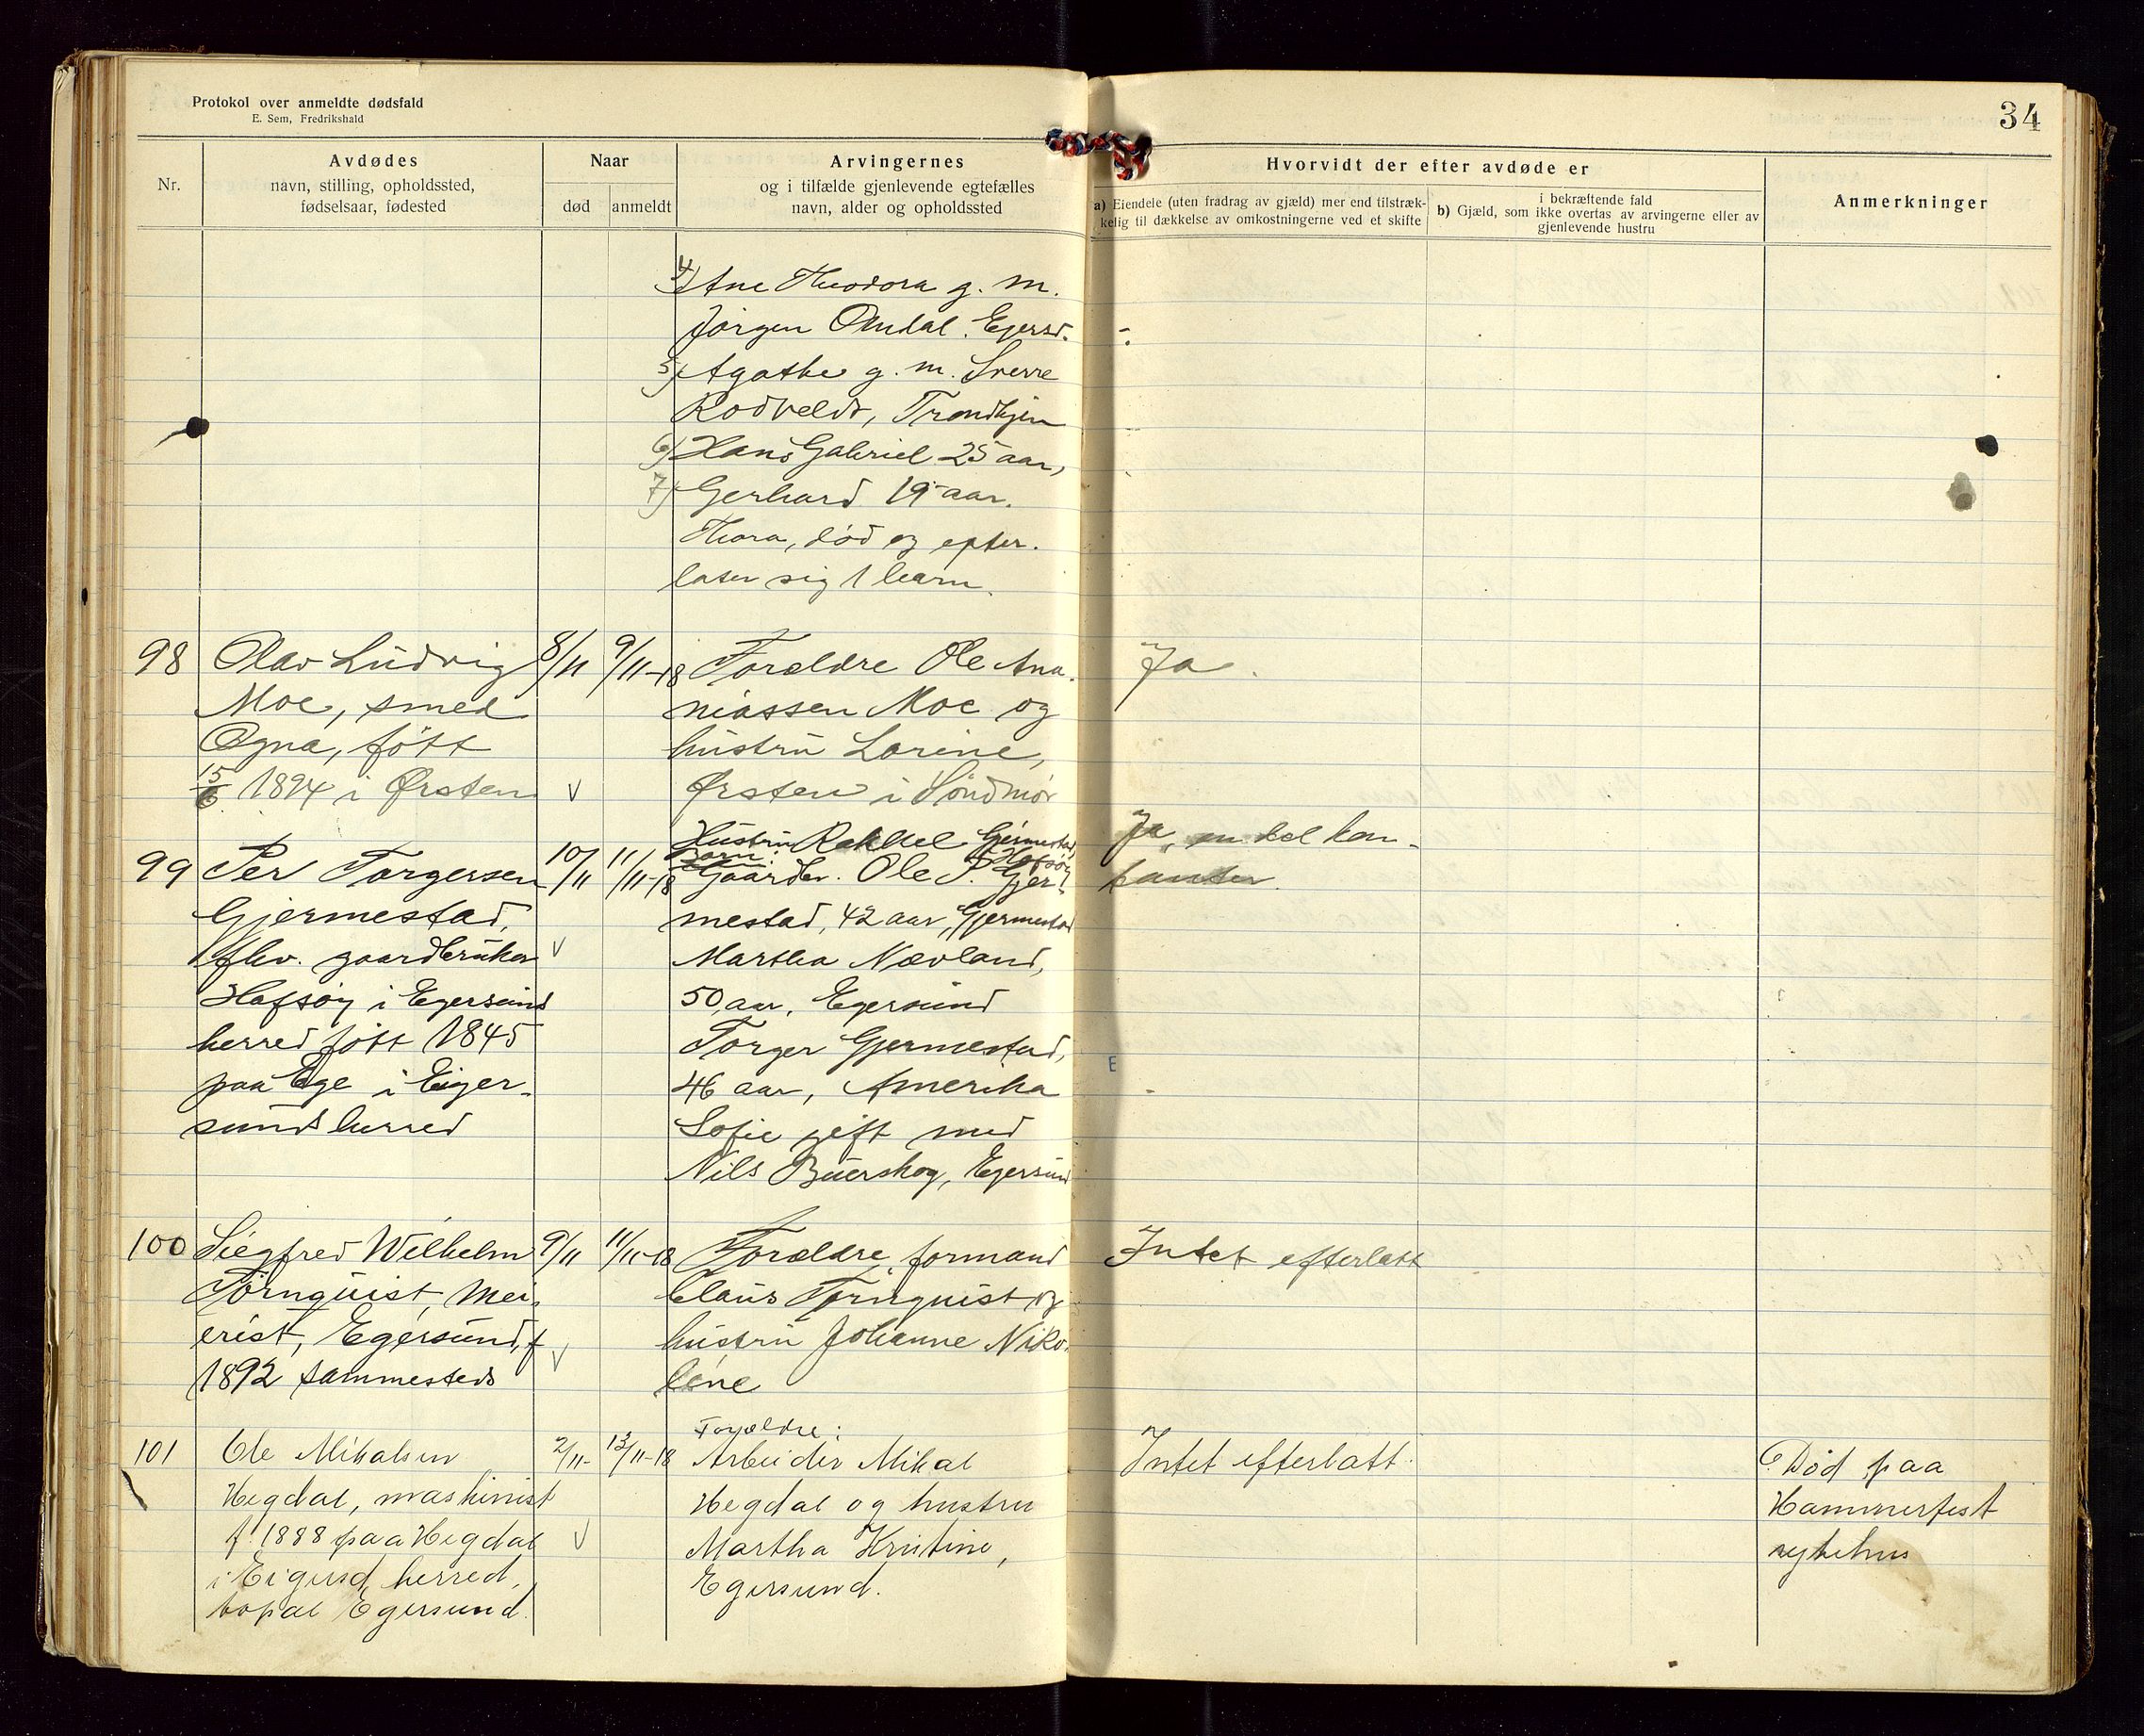 Protokol over anmeldte dødsfald
E. Sem, Fredrikshald
34
Nr.
Avdødes
navn, stilling, opholdssted,
fødselsaar, fødested
Naar
død
anmeldt
Arvingernes
og i tilfælde gjenlevende egtefælles
navn, alder og opholdssted
Hvorvidt der efter avdøde er
a) Eiendele (uten fradrag av gjæld) mer end tilstræk-
kelig til dækkelse av omkostningerne ved et skifte
i bekræftende fald
b) Gjæld, som ikke overtas av arvingerne eller av
gjenlevende hustru
Anmerkninger
4) Ane Theodora g. m.
Jörgen Omdal, Egersd.
5) Agathe g. m. Sverre
Rodveldt, Trondhjem
6) Hans Gabriel 25 aar,
7) Gerhard 19 aar.
Thora, död og efter-
later sig 1 barn.
98
Olav Ludvig
Moe, smed
Ogna, född
15/6 1894 i Ørsten
8/11
9/11-18
Forældre Ole Ana-
niassen Moe og
hustru Lorine,
Ørsten i Söndmör
Ja.
99
Per Torgersen
Gjermestad,
fhv. gaardbruker
Hafsöy i Egersund
herred født 1845
paa Ege i Eiger-
sunds herred
10/11
11/11-18
Hustru Rakkel Gjermestad,
Hafsöy
Barn:
Gaardbr. Ole P. Gjer-
mestad, 42 aar, Gjermestad
Martha Nævland,
50 aar, Egersund
Torger Gjermestad,
46 aar, Amerika
Sofie gift med
Nils Buerskog, Egersund
Ja, en del kon-
tanter.
E
100
Siegfred Wilhelm
Törnquist, Mei-
erist, Egersund, f
1892 sammesteds
9/11
11/11-18
Forældre, formand
Claus Törnquist og
hustru Johanne Niko-
line
Intet efterlatt
101
Ole Mikalsen
Hegdal, maskinist
f. 1888 paa Hegdal
i Eigersd. herred,
bopal Egersund.
2/11-
13/11-18
Forældre:
Arbeider Mikal
Hegdal og hustru
Martha Kristine,
Egersund.
Intet efterlatt.
Død paa
Hammerfest
sykehus